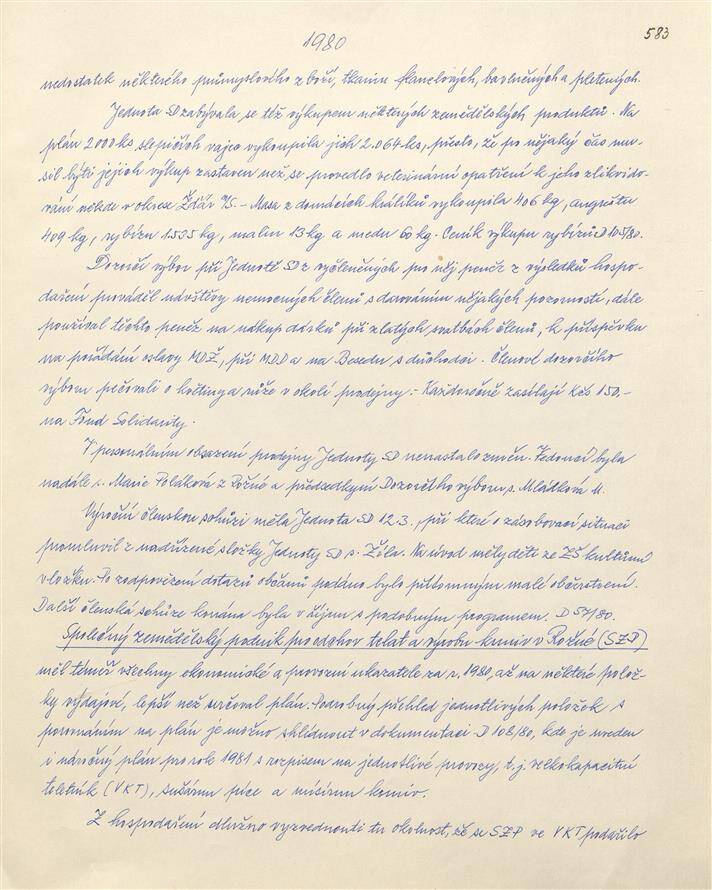 583
1980
nedostatek některého průmyslového zboží, tkanin flanelových, bavlněných a pletených.
Jednota SD zabývala se též výkupem některých zemědělských produktů. Na
plán 2000 ks slepičích vajec vykoupila jich 2.064 ks, přesto, že po nějaký čas mu-
sil býti jejich výkup zastaven než se provedlo veterinární opatření k jeho zlikvido-
vání někde v okrese Žďár n/S. - Masa z domácích králíků vykoupila 406 kg, angreštu
409 kg, rybízu 1.535 kg, malin 13 kg a medu 60 kg. Ceník výkupu rybízů D 105/80.
Dozorčí výbor při Jednotě SD z vyčleněných pro něj peněz z výsledků hospo-
daření prováděl návštěvy nemocných členů s darováním nějakých pozorností, dále
používal těchto peněz na nákup dárků při zlatých svatbách členů, k příspěvku
na pořádání oslavy MDŽ, při MDD a na Besedu s důchodci. Členové dozorčího
výboru pečovali o květiny a růže v okolí prodejny. - Každoročně zasílají Kčs 150.-
na Fond Solidarity.
V personálním obsazení prodejny Jednoty SD nenastalo změn. Vedoucí byla
nadále s. Marie Poláková z Rožné a předsedkyní Dozorčího výboru s. Mládková M.
Výroční členskou schůzi měla Jednota SD 12.3., při které o zásobovací situaci
promluvil z nadřízené složky Jednoty SD s. Žila. Na úvod měly děti ze ZŠ kulturní
vložku. Po zodpovězení dotazů občanů podáno bylo přítomným malé občerstvení.
Další členská schůze konána byla v říjnu s podobným programem. D 57/80.
Společný zemědělský podnik pro odchov telat a výrobu krmiv v Rožné (SZP)
měl téměř všechny ekonomické a provozní ukazatele za r. 1980, až na některé polož-
ky výdajové, lepší než určoval plán. Podrobný přehled jednotlivých položek s
porovnáním na plán je možno shlédnout v dokumentaci D 108/80, kde je uveden
i náročný plán pro rok 1981 s rozpisem na jednotlivé provozy, t.j. velkokapacitní
teletník (VKT), sušárnu píce a mísírnu krmiv.
Z hospodaření dlužno vyzvednouti tu okolnost, že se SZP ve VKT podařilo